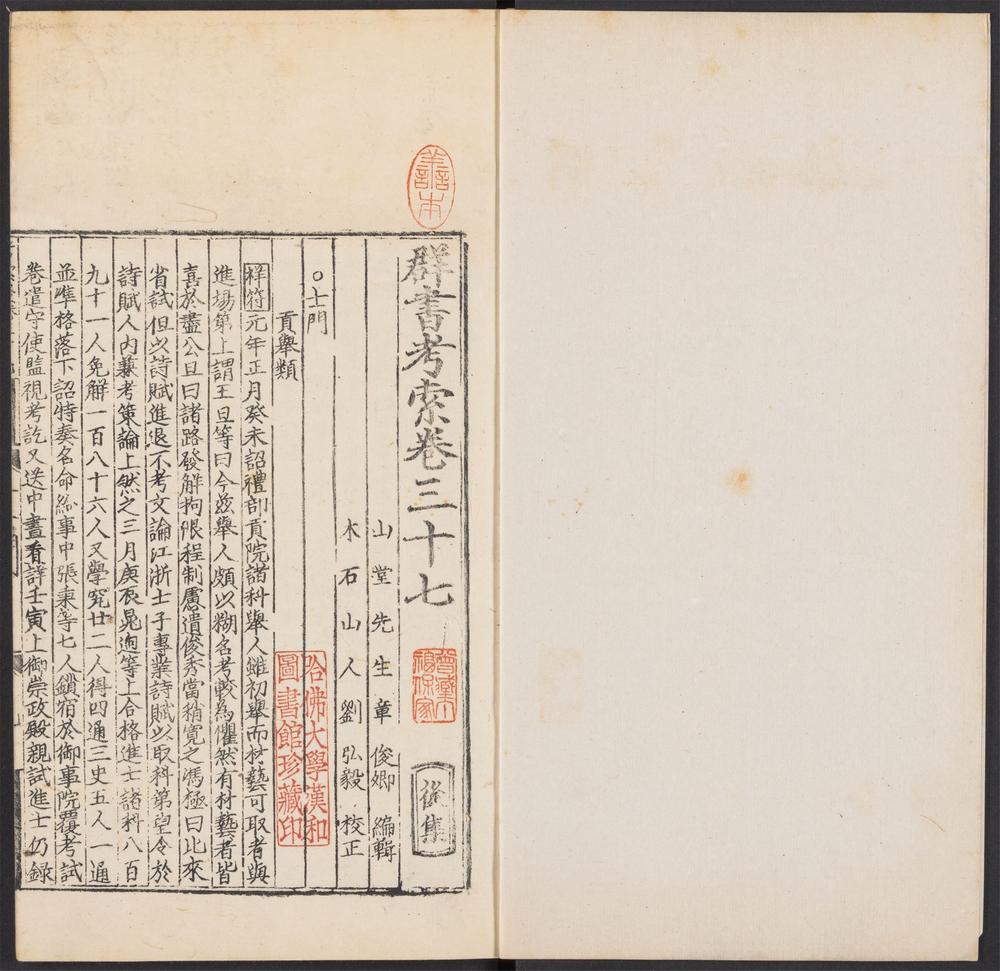 善本
群書考索卷三十七
後集
山堂先生章俊卿編輯
木石山人劉弘毅校正
哈佛大學漢和圖書館珍藏印
○士門
貢舉類
祥符元年正月癸未詔禮部貢院諸科舉人雖初舉而材藝可取者與
進場第上謂王旦等曰今茲舉人頗以糊名考較為懼然有材藝者皆
喜於盡公旦曰諸路發解拘限程制慮遺俊秀當稍寬之馮極曰比來
省試但以詩賦進退不考文論江浙士子專業詩賦以取科第望令於
詩賦人內兼考策論上然之三月庚辰晁迥等上合格進士諸科八百
九十一人免解一百八十六人又學究廿二人得四通三史五人一通
並準格落下詔特奏名命給事中張秉等七人鎖宿於御事院覆考試
卷遣守使監視考訖又送中書看詳壬寅上御崇政殿親試進士仍録